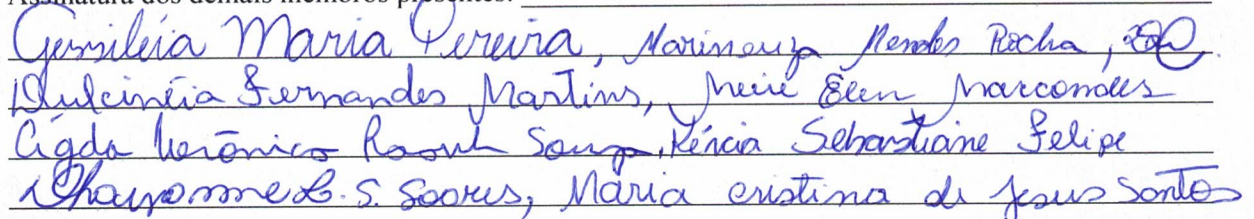 Assinatura dos demais membros presentes:
Gersiléia Maria Pereira, Marineuza Mendes Rocha,
Dulcinéia Fernandes Martins, Meire Ellen Marcondes
Verônica Souza, Kércia Sebastiane Felipe
S. Soares, Maria cristina de Jesus Santos